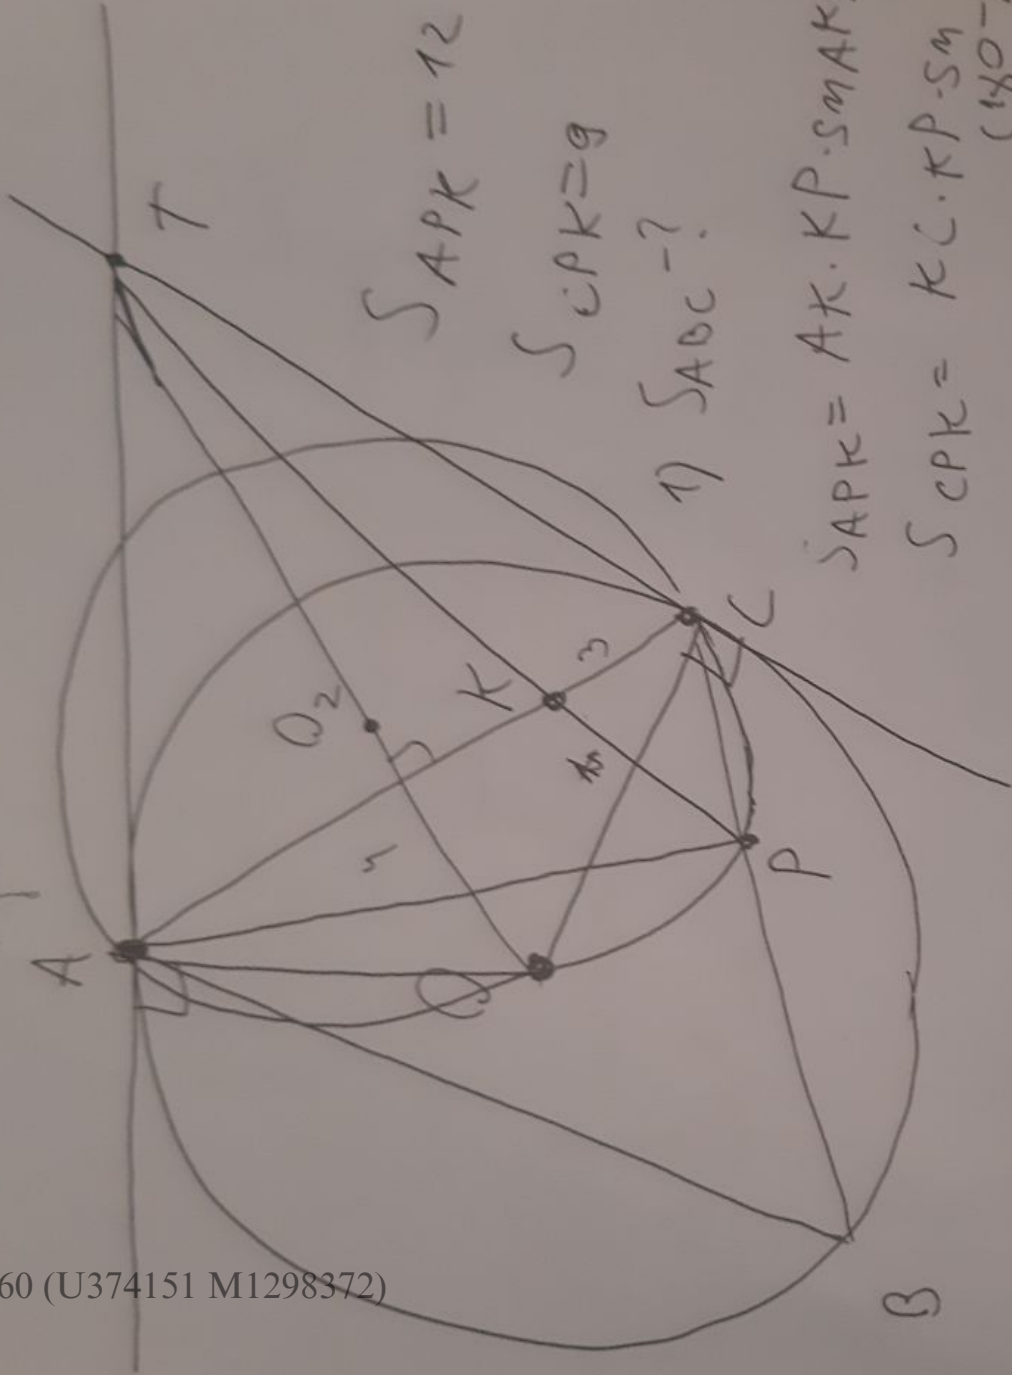 A
T
O₂
K
3
4
O
P
C
B
S APK = 12
S CPK = 9
1) S ABC - ?
S APK = AK · KP · sin AK
S CPK = KC · KP · sin
(180 -
60 (U374151 M1298372)